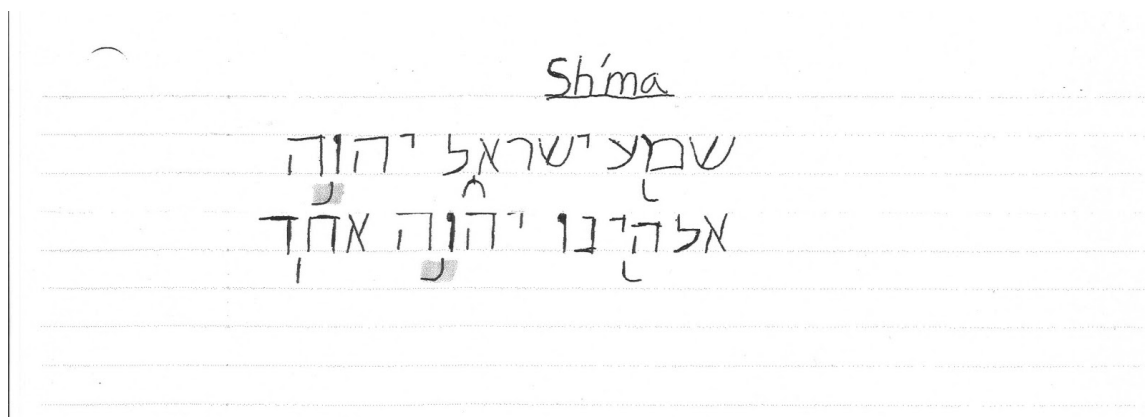 Sh'ma
שמע ישראל יהוה
אלהינו יהוה אחד